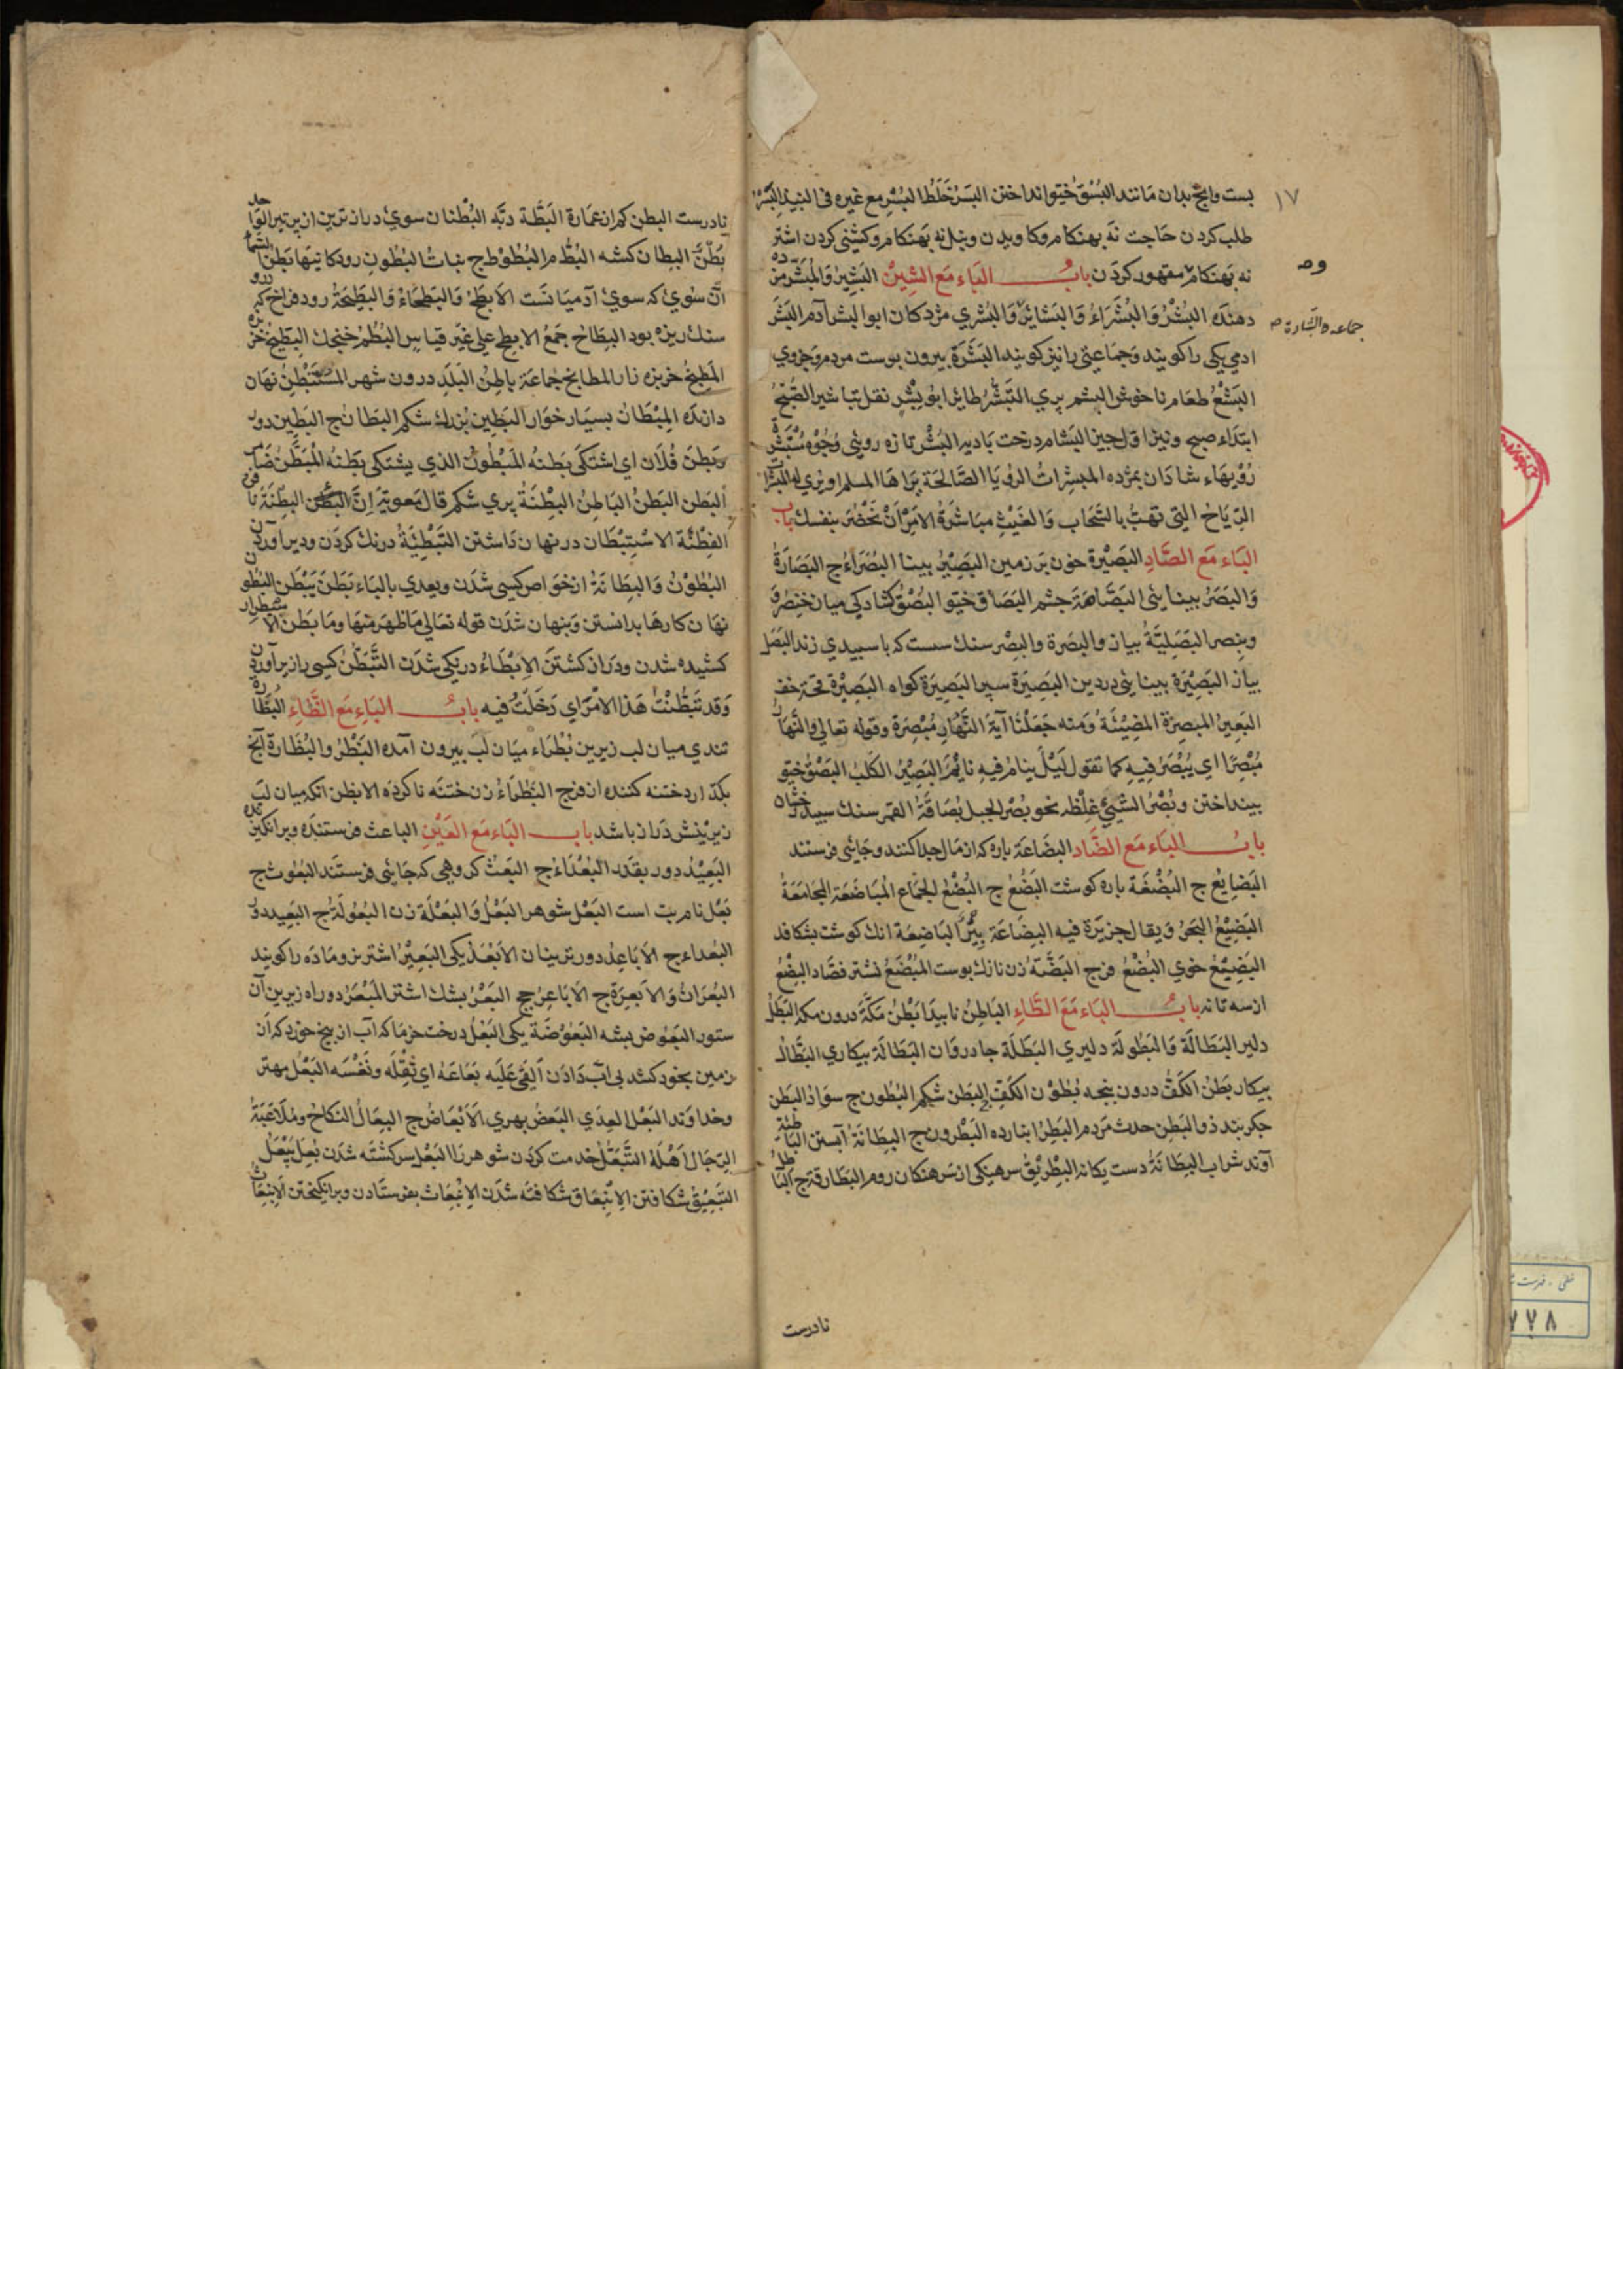 ۱۷
بست وانج بدان مانند البُسْقُ خیو انداختن البَسْرُ خَلْطُ البُسْرِ مع غیره فی النبیذ البَسْرُ
طلب کردن حاجت نه بهنکام وکاویدن ونیل نه بهنکام وکشنی کردن اشتر
نه بهنکام مقهور کردن بابُ البَاء مَعَ الشِّیْن البَشِیرُ وَالمُبَشِّر مژده
دهنده البُشْرُ وَالبُشَرَاءُ وَالبَشَائِرُ وَالبُشْرِی مژدکان ابوالبشر آدم البَشَرُ
جماعه والبشارة
ادمی یکی را کویند وجماعتی را نیز کویند البَشَرَةُ بیرون بوست مردم وجزوی
البَشْعُ طعام ناخوش البشم بری التُبَشِّرُ طایر ابو بِشْرٍ نقل تباشیر الصُّبْح
ابتداء صبح ونیز اول جین البَشَام درخت بادیه البُشْر تازه رویئی وُجُوهٌ مُسْتَبْشِرَة
رویهاء شادان بمژده المبشرات الرؤیا الصَّالِحَة یراها المسلم او یری له
الرِّیَاحُ التی تهبُّ بالسَّحَاب وَالغَیْثِ مباشَرَةُ الامْرِ اَنْ تَحْضُرَه بنفسك بابُ
البَاء مَعَ الصَّادِ البَصِیْرة خون بر زمین البَصِیْرُ بینا البُصَرَاءُ ج البَصَارَةُ
وَالبَصَرُ بینایئی البَصَّاصَة جشم البُصَاق خیو البُصْقُ کشادکی میان خنصر و
وبنصر البَصَلِیَّةُ بیاز والبصرة والبِصْر سنك سست که باسبیدی زند البَصَل
بیاز البَصِیْرَة بینایئی در دین البَصِیْرَة سپر البَصِیرَة کواه البَصِیْرة
المُبْصِرَة المُضِیْئَةُ وَمنه جَعَلْنَا آیَةَ النَّهَارِ مُبْصِرَة وقوله تعالی والنَّهَارَ
مُبْصِرًا ای یُبْصَرُ فیه کما تقول لَیْلٌ ینامُ فیه نَائِمٌ البَصِیْرُ الکَلْبُ البَصْقُ خیو
بینداختن وبُصْرُ الشَّیْئِ غِلْظُه نحو بُصْر الجبل بُصَاقَةُ القمر سنك سبید
بابُ البَاء مَعَ الضَّاد البِضَاعَة باره که از مال جدا کنند وجایئی فرستند
البَضَایِعُ ج البُضْعَة باره کوشت البَضْعُ ج البُضْعُ الجماع المُبَاضَعَة المُجَامَعَةُ
البَضِیْعُ البَحْرُ وَیقال جَزِیْرَة فیه البِضَاعَة بِئْرٌ البَاضِعَة انك کوشت بشکافد
البَضِیْعُ خوی البُضْعُ فرج البَضَّةُ زن نازك بوست المِبْضَعُ نشتر فصاد البِضْعُ
از سه تا نه بابُ البَاء مَعَ الطَّاءِ البَاطِنُ نابیدا بَطْنُ مَکَّةَ درون مکه البَطَلُ
دلیر البَطَالَةُ وَالبُطُولَةُ دلیری البَطَلَة جادوان البَطَالَة بیکاری البَطَّالُ
بیکار بَطْنُ الکَفِّ درون بنجه بُطُوْن الکَفّ ج البَطْن شکم البُطُون ج سوادُ البَطْن
جکربند ذو البَطْن حدث مردم البَطِرُ انبارده البَطْرُون ج البِطَانَةُ آستر البَاطِئَة
آوند شراب البِطَانَةُ دست یکانه البِطْرِیْقُ سرهنکی از سرهنکان روم البَطَارِقَة ج
نادرست
نادرست البطن کم از عمارة البَطَّة دبّه البُطْنَان سوی درازترین از پر تیر
بُطْنٌ البِطَان کشه البُطُم البُطُوْط ج بنات البُطُونِ رودکانیها بَطْنُ
آن سوی که سوی آدمیانست الابطَحُ وَالبَطحَاءُ وَالبَطِیْحَةُ رود فراخ که
سنك ریزه بود البِطَاح جَمْعُ الابطح علی غَیْرِ قیاسٍ البُطْمُ خنجك البِطِّیْخ خربزه
المَطْبَخ خربزه زار المطابخ جماعة باطِنُ البَلَدِ درون شهر المُسْتَبْطِنُ نهان
دارنده المِبْطَانُ بسیار خوار البَطِین بزرك شکم البطان ج البَطِین دور
وبَطِنَ فُلَان ای اشتَکَی بَطنَهُ المَبْطُون الذی یشتکی بَطنَهُ المُبَطَّنُ
البَطن البَطنُ البَاطِنُ البِطْنَةُ پری شکم قال معویة اِنَّ البِطْنَة
الفِطْنَة الاسْتِبْطَان در نهان داشتن التَّبْطِئَةُ درنك کردن ودیر آوردن
البُطُوْنُ وَالبِطَانَةُ از خواص کسی شدن ویعدی بالباء بَطَنَ یَبْطُن
نهان کارها بدانستن وبنهان شدن قوله تعالی مَا ظَهَرَ مِنْهَا وَمَا بَطَنَ
کشیده شدن ودراز کشتن الاِبْطَاءُ درنکی شدن التَّبَطُّنُ کسی را زیر آوردن
وَقد تَبَطَّنْتُ هَذَا الامْرَ ای دَخَلْتُ فیه بابُ البَاء مَعَ الظَّاءِ البُظَارَة
تندی میان لب زیرین بُظْرَاء میان لب بیرون آمده البَظْرُ والبُظَارة آنج
بکذارد ختنه کننده از فرج البَظْرَاءُ زن ختنه ناکرده الابظر انکه میان لب
زیرینش دراز باشد بابُ البَاء مَعَ العَیْنِ الباعث فرستنده وبرانکیزنده
البَعِیْدُ دور بقدر البُعَدَاءُ ج البَعْثُ کروهی که جایئی فرستند البُعُوث ج
بَعْل نام بت است البَعْل شوهر البَعْلُ وَالبَعْلَة زن البُعُولَةُ ج البَعِید دور
البُعداء ج الاَبَاعِدُ دورترینان الاَبْعَدُ یکی البَعِیْرُ اشتر نر وماده را کویند
البُعْرَانُ وَالاَبعِرَةُ ج الاَبَاعِرُ جج البَعْرُ بشك اشتر المَبْعَرُ دو راه زیرین آن
ستور البَعُوض بشه البَعُوْضَة یکی البَعْلُ درخت خرما که آب از بیخ خورد که آن
زمین بخود کشد بی آب دادن اَلقَی عَلَیه بَعَاعَهُ ای ثِقْلَه ونَفْسَه البَعْل مهتر
وخداوند البَعْل العِذْی البَعْضُ بهری الاَبْعَاضُ ج البِعَالُ النکاحُ ومُلَاعَبَةُ
الرِّجَالِ اَهْلَهُ التَّبَعُّلُ خدمت کردن شوهر را البَعَل سرکشته شدن بَعِلَ یَبْعَلُ
التَّبْعِیْقُ شکافتن الاِنْبِعَاق شکافته شدن الاِنْبِعَاث بفرستادن وبرانکیختن
۷۷۸
خطی . فهرست